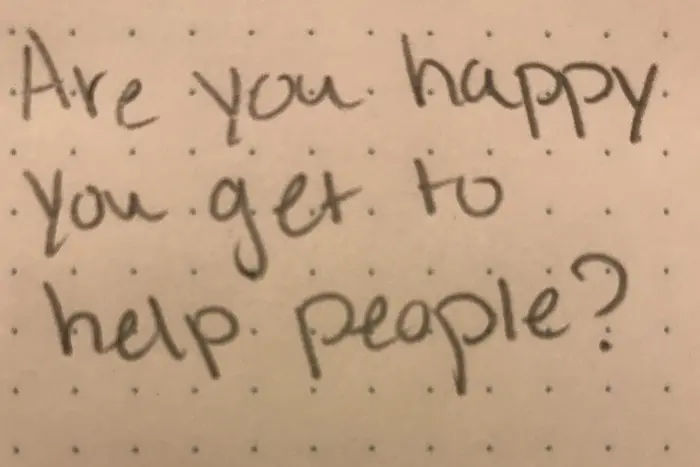 Are you happy
you get to
help people?